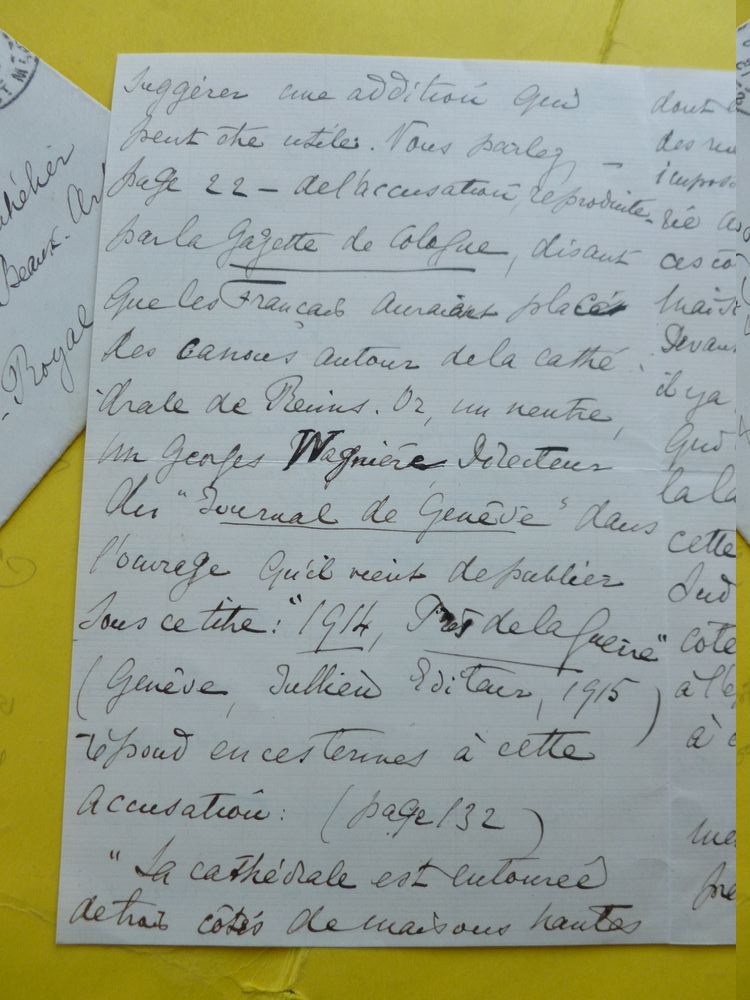 suggérer une addition qui
peut être utile. Vous parlez, –
page 22 – de l'accusation, reproduite
par la Gazette de Cologne, disant
que les Français auraient placés
des canons autour de la cathé
drale de Reims. Or, un neutre,
Mr Georges Wagnière, Directeur
du "Journal de Genève" dans
l'ouvrage qu'il vient de publier
sous ce titre: "1914, Près de la Guerre"
(Genève, Jullien Editeur, 1915)
répond en ces termes à cette
accusation: (page 132)
"La cathédrale est entourée
de trois côtés de maisons hautes
dont
des
impos
ré
ces co
mais
Devant
il y a
Qui
la
cette
Sud
côté
à l'e
à c
Beaux-Ar
-Royal